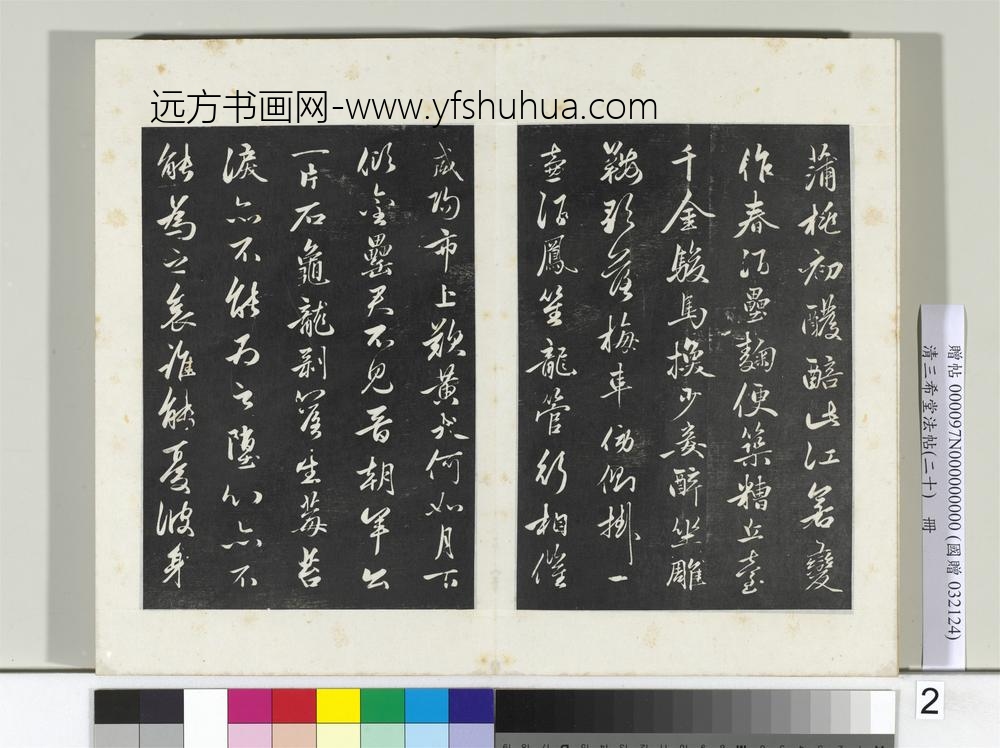 远方书画网-www.yfshuhua.com
蒲桃初醱醅此江若變
作春酒壘麴便築糟丘臺
千金駿馬換少妾醉坐雕
鞍歌落梅車傍側掛一
壺酒鳳笙龍管行相催
咸陽市上歎黃犬何如月下
傾金罍君不見晉朝羊公
一片石龜龍剥落生莓苔
淚亦不能為之墮心亦不
能為之哀誰能憂彼身
贈帖 000097N000000000 (國贈 032124)
清三希堂法帖(二十) 冊
2